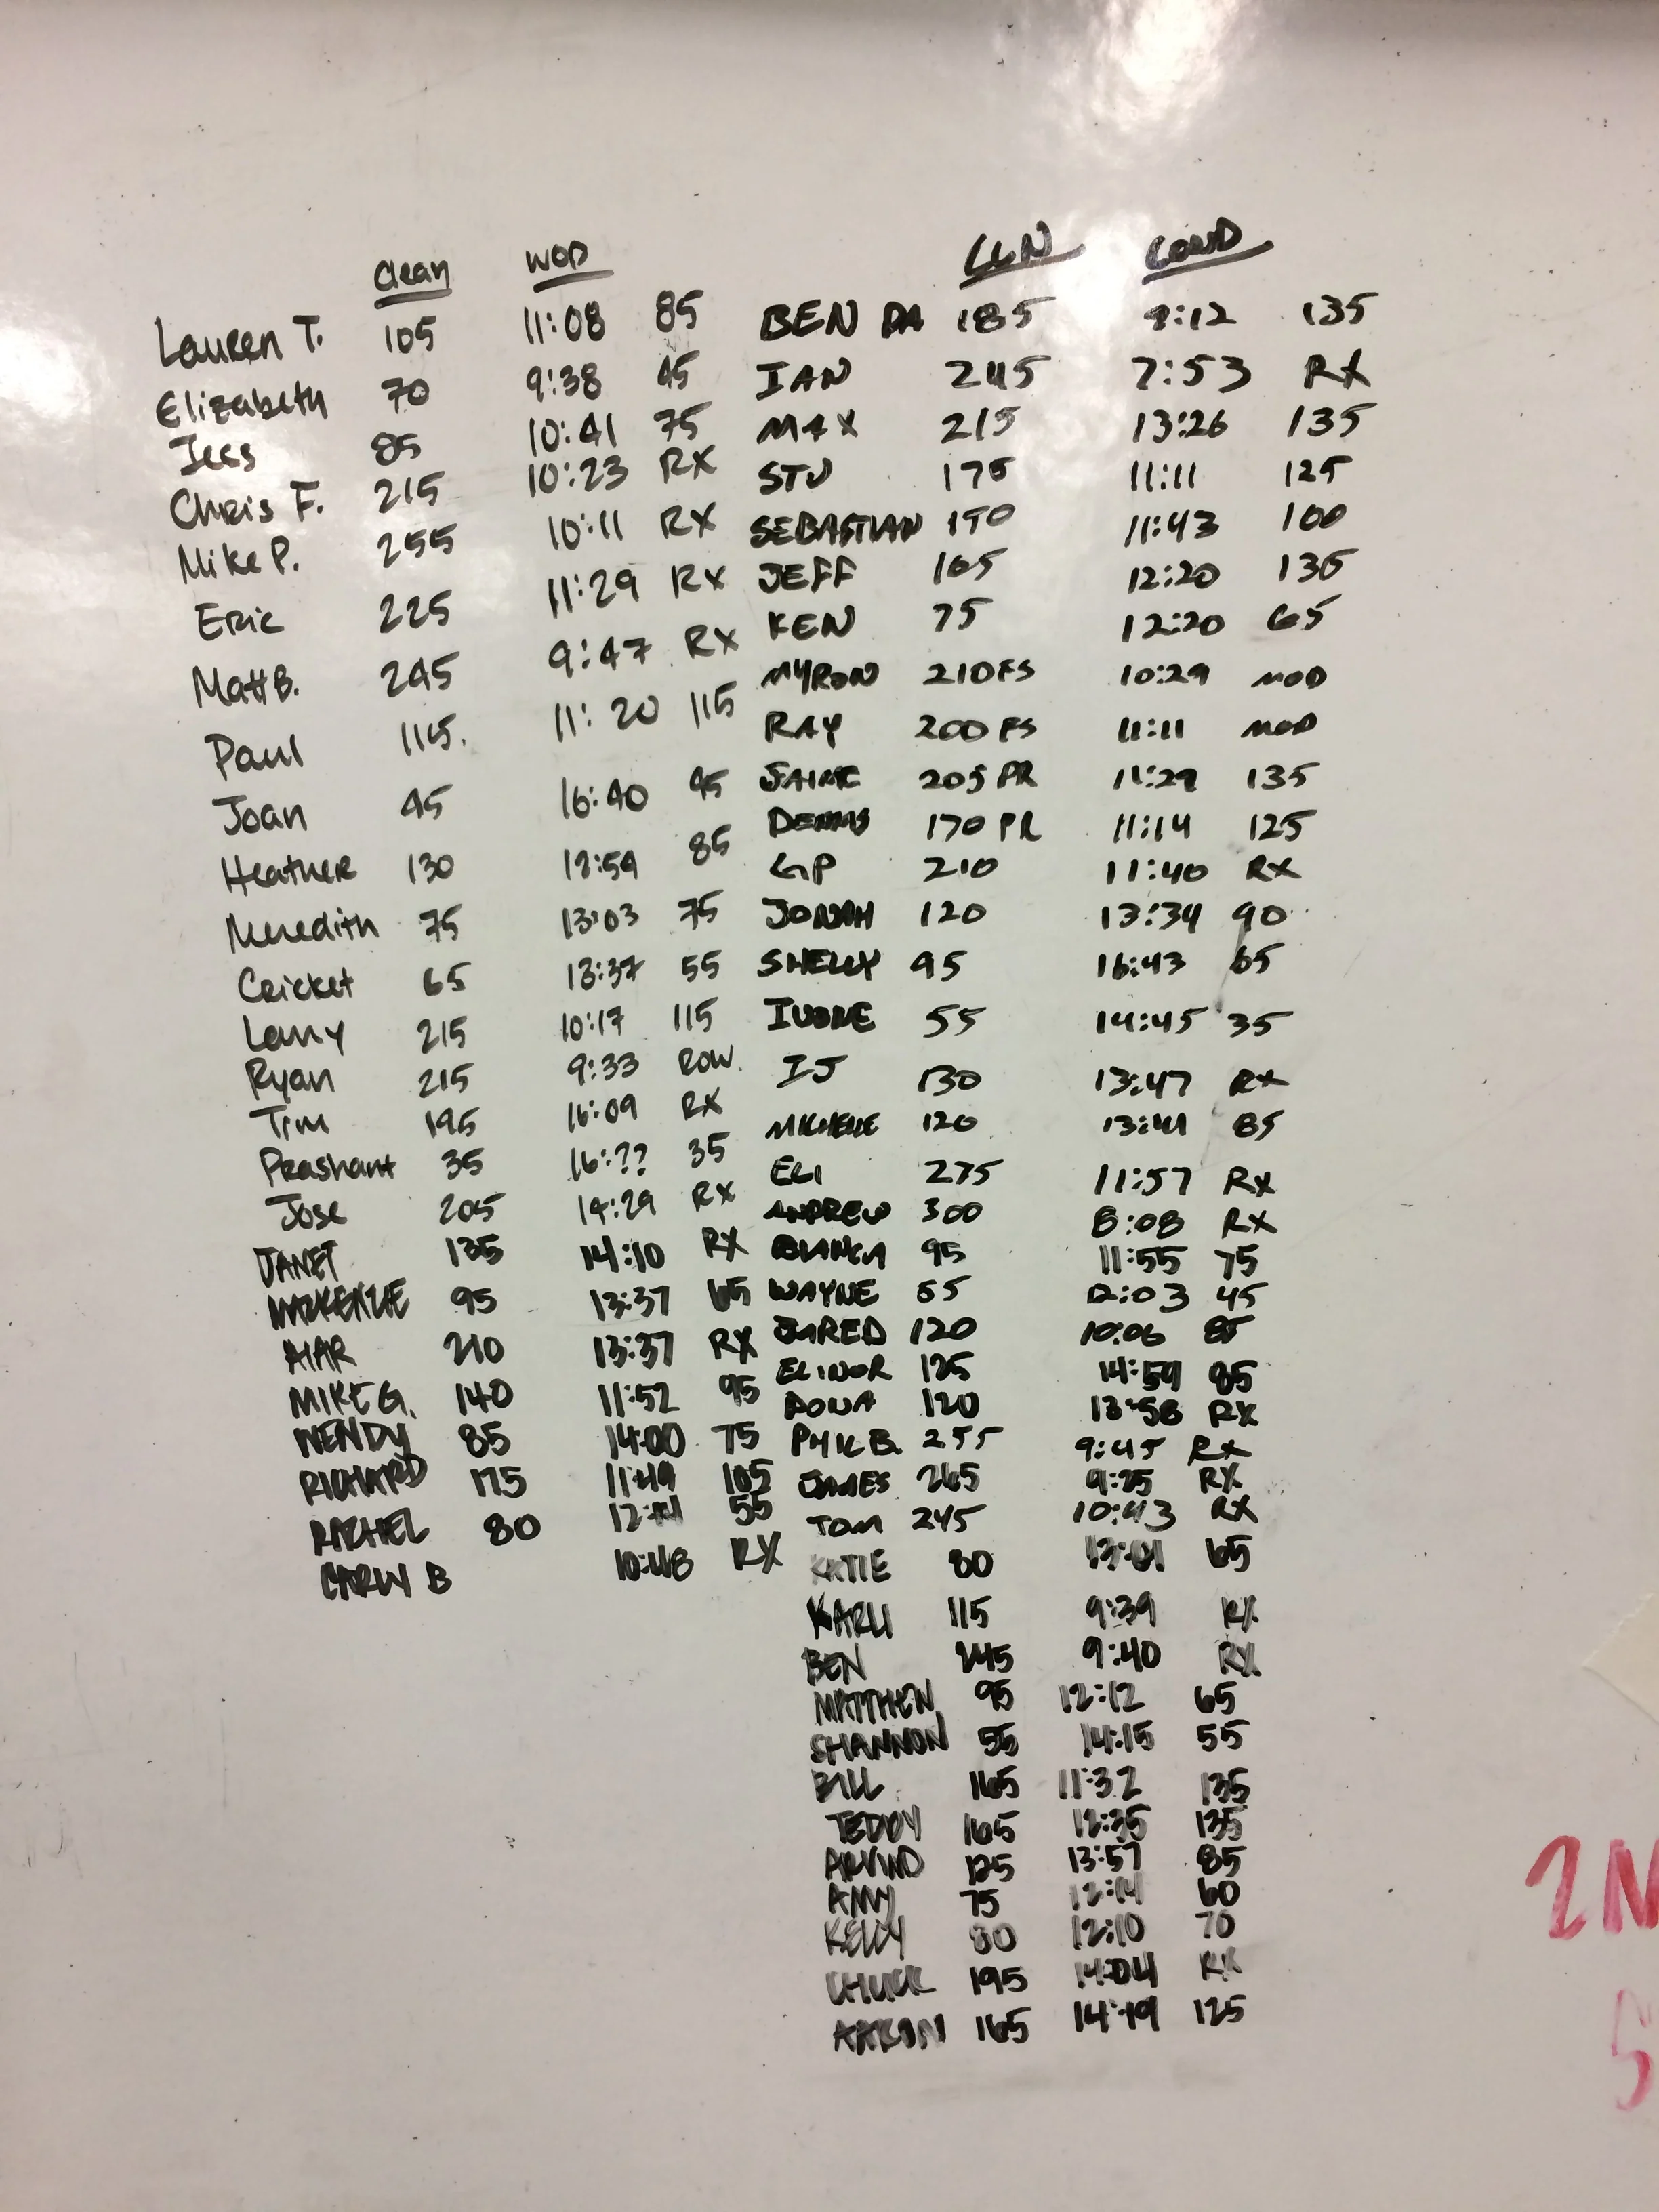 Clean WOD
Lauren T. 105 11:08 85
Elizabeth 70 9:38 45
Jess 85 10:41 75
Chris F. 215 10:23 RX
Mike P. 255 10:11 RX
Eric 225 11:29 RX
Matt B. 245 9:47 RX
Paul 115. 11:20 115
Joan 45 16:40 45
Heather 130 12:59 85
Meredith 75 13:03 75
Cricket 65 13:37 55
Larry 215 10:17 115
Ryan 215 9:33 ROW.
Tim 195 16:09 RX
Prashant 35 16:?? 35
Jose 205 14:29 RX
JANET 135 14:10 RX
MACKENZIE 95 13:37 65
210 13:37 RX
MIKE G. 140 11:52 95
WENDY 85 14:00 75
RICHARD 175 11:49 105
RACHEL 80 55
B 10:48 RX
CLN COND
BEN DA 185 9:12 135
IAN 245 7:53 RX
MAX 215 13:26 135
STU 175 11:11 125
SEBASTIAN 170 11:43 100
JEFF 165 12:20 135
KEN 75 12:20 65
MYRON 210 FS 10:29 MOD
RAY 200 FS 11:11 MOD
JAIME 205 PR 11:29 135
DENNIS 170 PR 11:14 125
GP 210 11:40 RX
JONAH 120 13:34 90
SHELLY 95 16:43 65
55 14:45 35
IJ 130 13:47 RX
MICHELE 120 13:41 85
ELI 275 11:57 RX
ANDREW 300 8:08 RX
BIANCA 95 11:55 75
WAYNE 55 12:03 45
JARED 120 10:06 85
ELINOR 125 14:59 85
120 13:58 RX
PHIL B. 255 9:45 RX
JAMES 265 9:25 RX
TOM 245 10:43 RX
KATIE 80 13:01 65
KARLI 115 9:39 RX
BEN 245 9:40 RX
MATTHEW 95 12:12 65
SHANNON 55 14:15 55
BILL 165 11:32 135
TEDDY 165 12:35 135
ARVIND 125 13:57 85
AMY 75 12:14 60
KELLY 80 12:10 70
CHUCK 195 14:04 RX
AARON 165 14:49 125
2N
5